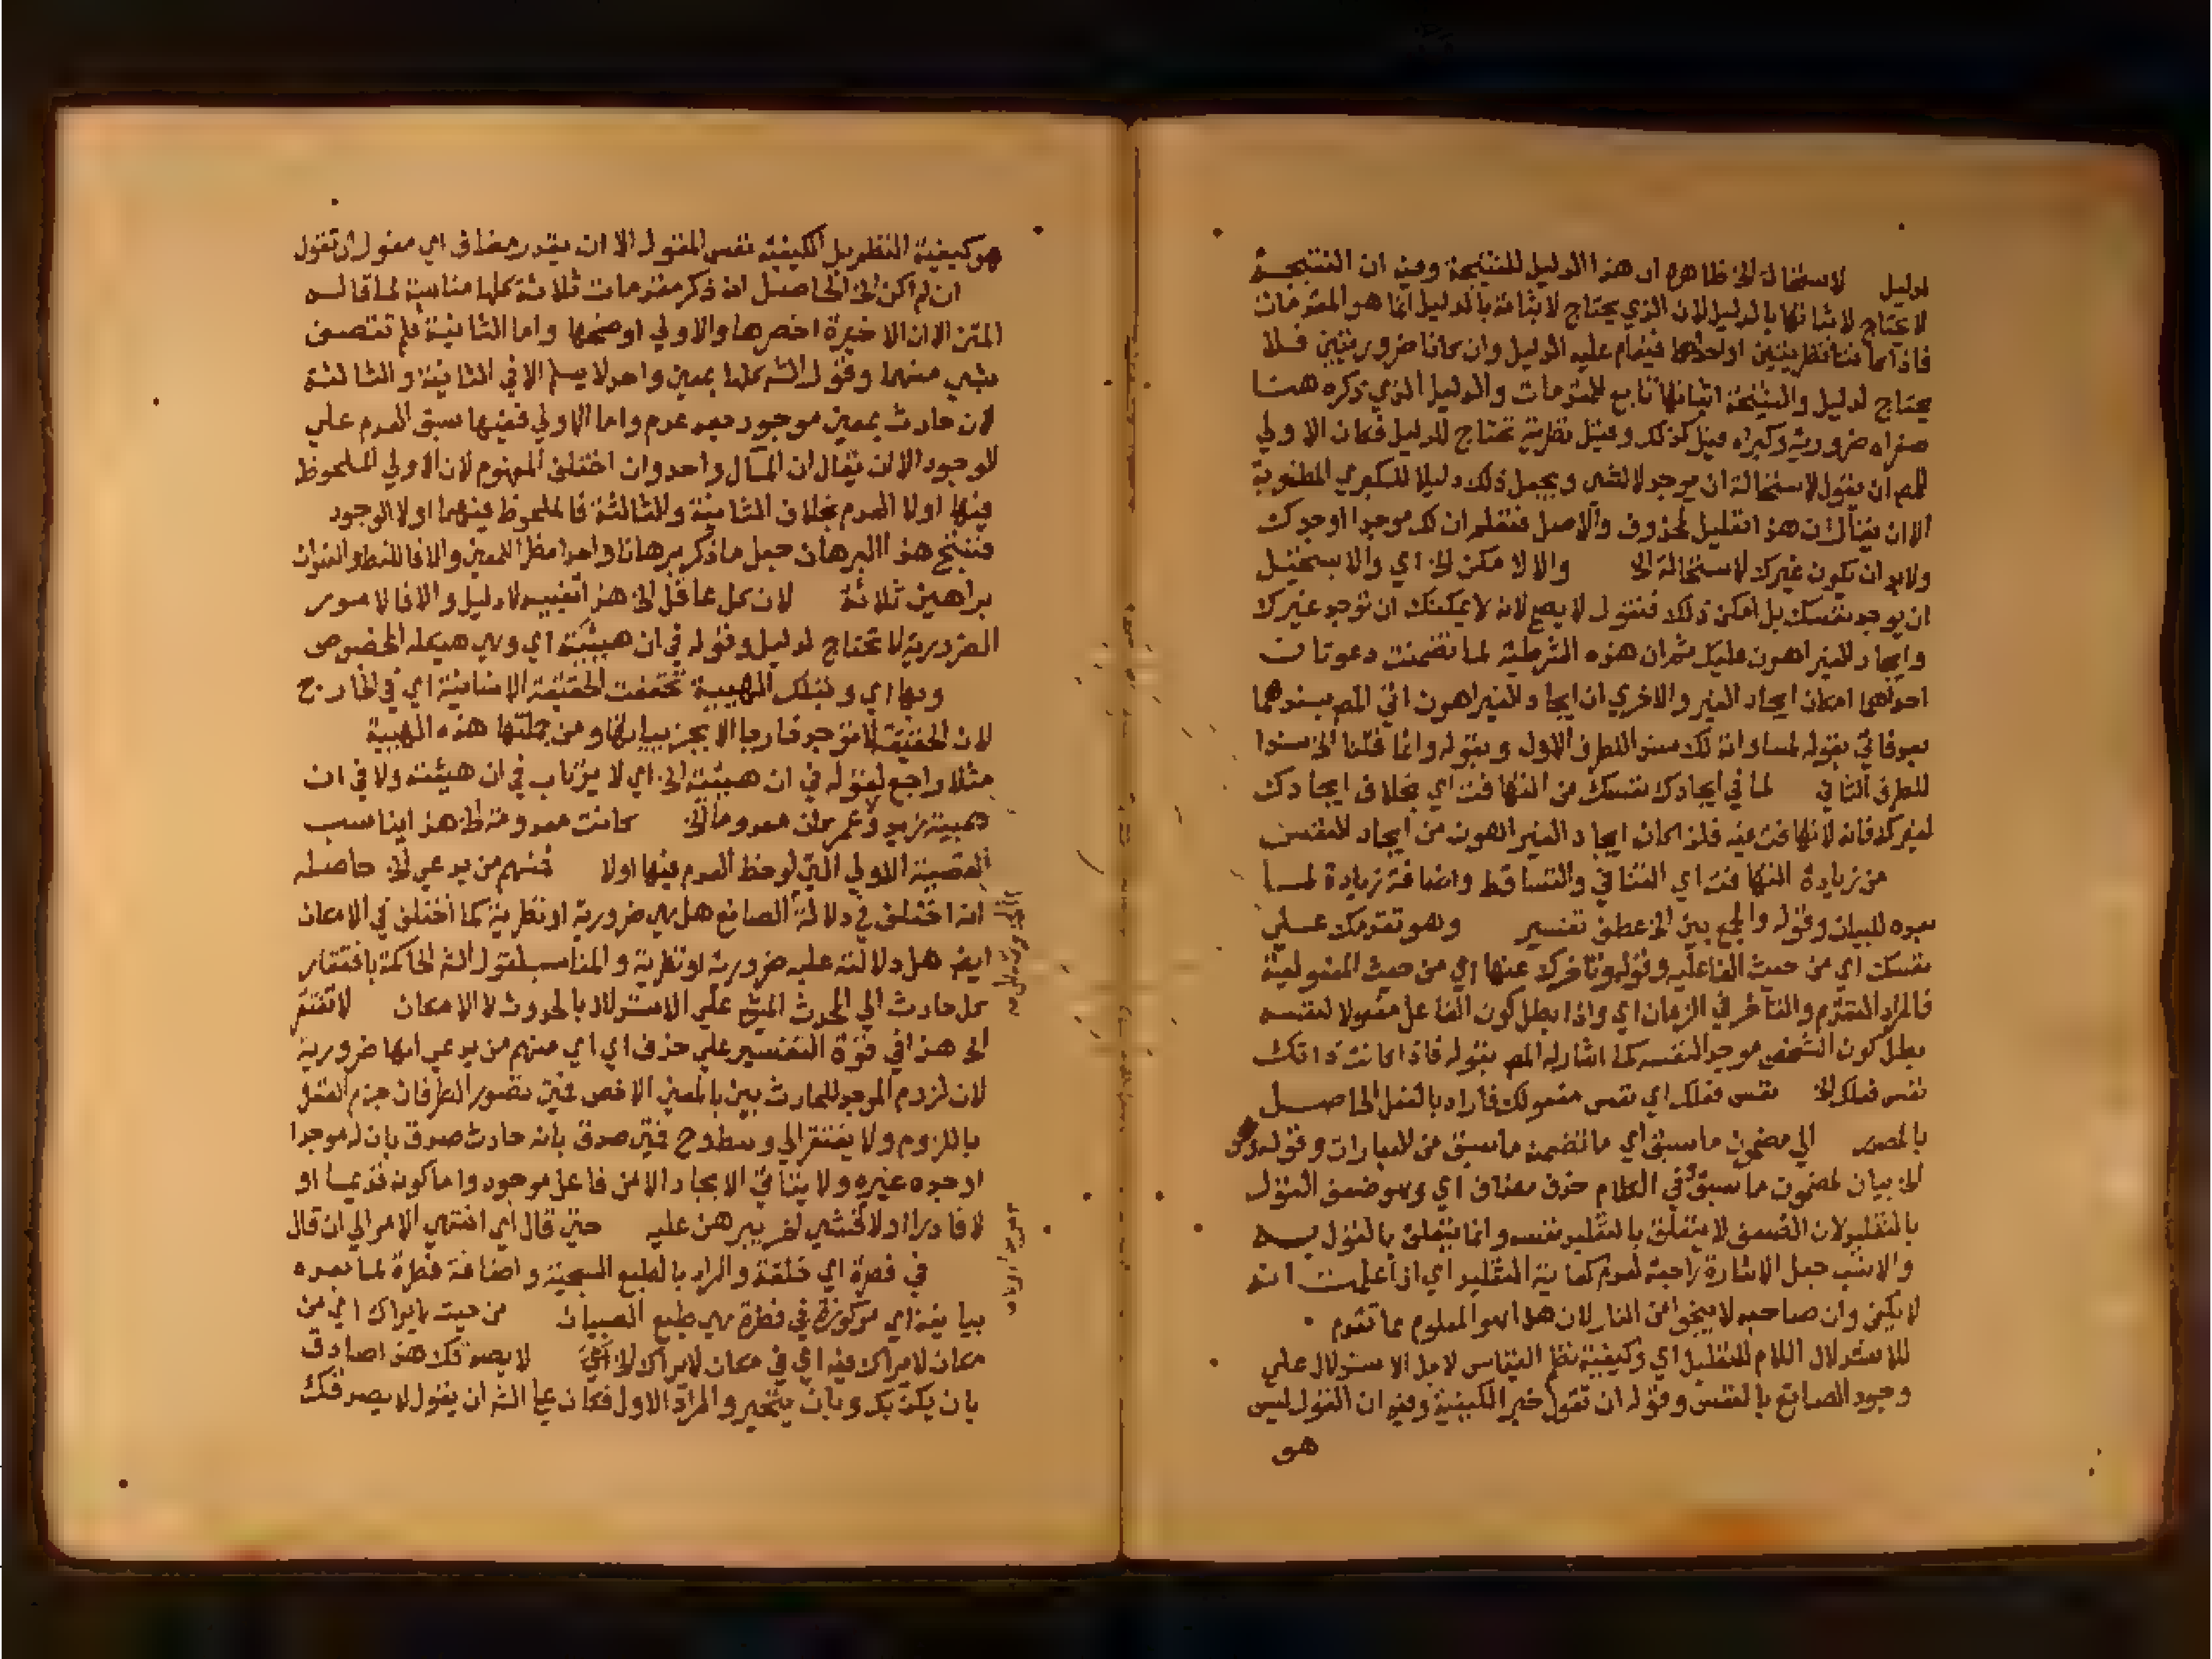 لدليل لاستحالة الخ ظاهره ان هذا الدليل للنتيجة وفيه ان النتيجة
لا تحتاج لاثباتها بالدليل لان الذي يحتاج لاثباته بالدليل انما هو المقدمات
فاذا كانتا نظريتين او احداهما فيقام عليه الدليل وان كانتا ضروريتين فلا
يحتاج لدليل والنتيجة اثباتها تابع للمقدمات والدليل الذي ذكره هنا
صغراه ضرورية وكبراه قيل كذلك وقيل نظرية تحتاج للدليل فكان الاولي
للمص ان يقول لاستحالة ان يوجد الشي ويجعل ذلك دليلا للكبري المطوية
الا ان يقال ان هذا تعليل لمحذوف والاصل فتعلم ان لك موجدا اوجدك
ولابد ان يكون غيرك لاستحالة الخ والا لامكن الخ اي والا يستحيل
ان يوجد نفسك بل امكن ذلك فنقول لا يصح لانه لا يمكنك ان توجد غيرك
وايجاد الغير اهون عليك ثم ان هذه الشرطية لما تضمنت دعوتان
احداهما امكان ايجاد الغير والاخري ان ايجاد الغير اهون اتي المص بسندهما
بعد فاتي بقوله لمساواته لك سندا للطرف الاول وبقوله وانما قلنا الخ سندا
للطرف الثاني لما في ايجادك نفسك من التهافت اي بخلاف ايجادك
لغيرك فانه لا تهافت فيه فلذا كان ايجاد الغير اهون من ايجاد النفس
من زيادة التهافت اي التنافي والتساقط واضافة زيادة لما
بعده للبيان وقوله والجمع بين الخ عطف تفسير وهو تقدمك علي
نفسك اي من حيث الفاعلية وقوله وتاخرك عنها اي من حيث المفعولية
فالمراد التقدم والتاخر في الزمان اي واذا بطل كون الفاعل مفعولا لنفسه
بطل كون الشخص موجدا لنفسه كما اشار له المص بقوله فاذا كانت ذاتك
نفس فعلك الخ نفس فعلك اي نفس مفعولك فاراد بالفعل الحاصل
بالمصدر الي مضمون ما سبق اي ما تضمنه ما سبق من العبارات وقوله
الخ بيان لمضمون ما سبق في الكلام حذف مضاف اي وهو ضعف القول
بالتقليد لان الضعف لا يتعلق بالتقليد نفسه وانما يتعلق بالقول به
والانسب جعل الاشارة راجعة لعدم كفاية التقليد اي اذا علمت انه
لا يكفي وان صاحبه لا ينجو من النار لان هذا هو المعلوم مما تقدم
للاستدلال اللام للتعليل اي وكيفية نظم القياس لاجل الاستدلال علي
وجود الصانع بالنفس وقوله ان تقول خبر الكيفية وفيه ان القول ليس
هو
هو كيفية النظم بل الكيفية نفس المقول الا ان يقدر مضاف اي مقول ان تقول
ان لم اكن الخ الحاصل انه ذكر مقدمات ثلاثة كلها مناسبة لما قاله
المتن الا ان الاخيرة اخصرها والاولي اوضحها واما الثانية فلم تتصف
بشي منهما وقول الش كلها بمعني واحد لا يسلم الا في الثانية والثالثة
لان حادث بمعني موجود بعد عدم واما الاولي ففيها سبق العدم علي
الوجود الا ان يقال ان المآل واحد وان اختلف المفهوم لان الاولي الملحوظ
فيها اولا العدم بخلاف الثانية والثالثة فالملحوظ فيهما اولا الوجود
فنتيج هذا البرهان جعل ما ذكر برهانا واحدا نظرا للمعني والا فاللفظ والعنوان
براهين ثلاثة لان كل عاقل الخ هذا تنبيه لا دليل والا فالامور
الضرورية لا تحتاج لدليل وقوله في ان هيئته اي وهي هيكله المخصوص
وبها اي وبتلك الهيئة تحققت الحقيقة الانسانية اي في الخارج
لان الحقيقة لا توجد خارجا الا بجزئياتها ومن جملتها هذه الهيئة
مثلا راجع لقوله في ان هيئته الخ اي لا يرتاب في ان هيئته ولا في ان
هيئة زيد وعمر كان معدوما الخ كانت معدومة ط هذا يناسب
القضية الاولي التي لوحظ العدم فيها اولا فمنهم من يدعي الخ حاصله
انه اختلف في دلالة الصانع هل هي ضرورية او نظرية كما اختلف في الامكان
ايضا هل دلالته عليه ضرورية او نظرية والمناسب لقول الش الحاكمة بافتقار
كل حادث الي المحدث المبني علي الاستدلال بالحدوث لا الامكان لا تفتقر
الخ هذا في قوة التفسير علي حذف اي اي منهم من يدعي انها ضرورية
لان لزوم الموجد للحادث بين بالمعني الاخص فمتي تصور الطرفان جزم العقل
باللزوم ولا يفتقر الي وسط وح فمتي صدق بانه حادث صدق بان له موجدا
اوجده غيره ولا يتاتي الايجاد الا من فاعل موجود واما كونه قديما او
لا قادرا اولا فشي اخر يبرهن عليه حتي قال اي انتهي الامر الي ان قال
في فطرة اي خلقة والمراد بالطبع السجية واضافة فطرة لما بعده
بيانية اي مركوزة في فطرة هي طبع الصبيان من حيث لا يراك اي من
مكان لا يراك فيه اي في مكان لا يراك الخ لا يصدقك هذا صادق
بان يكذبك وبان يتحير والمراد الاول فكان علي الش ان يقول لا يصدقك